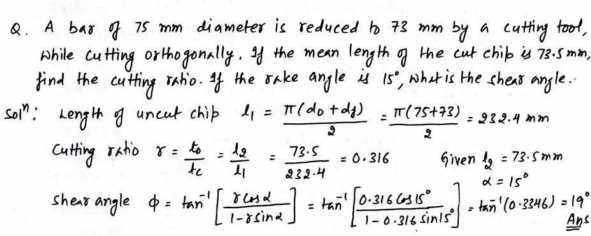 Q. A bar of 75 mm diameter is reduced to 73 mm by a cutting tool,
while cutting orthogonally. If the mean length of the cut chib is 73.5 mm,
find the cutting ratio. If the rake angle is 15°, what is the shear angle.
Solⁿ: Length of uncut chip l₁ = π(do + df)/2 = π(75+73)/2 = 232.4 mm
Cutting ratio r = to/tc = l₂/l₁ = 73.5/232.4 = 0.316 Given l₂ = 73.5mm
α = 15°
Shear angle ϕ = tan⁻¹[r cos α/1-r sin α] = tan⁻¹[0.316 Cos 15°/1-0.316 Sin 15°] = tan⁻¹(0.3346) = 19°
Ans